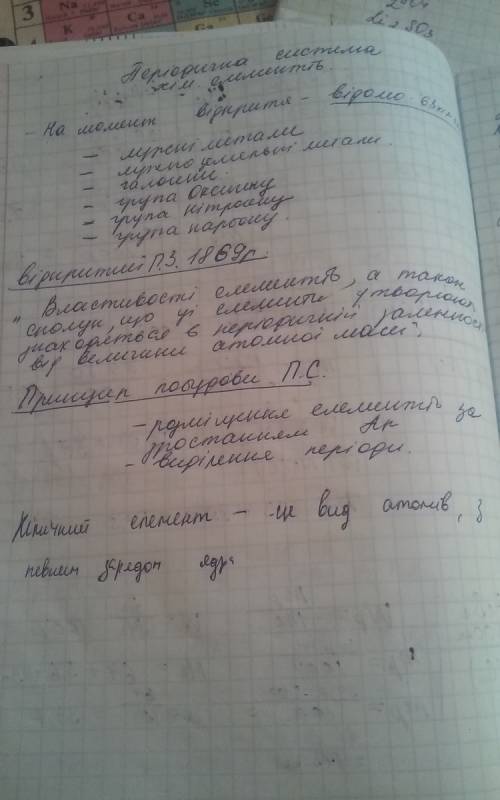 3
Na
K
Ca
Періодична система
хім. елементів.
- На момент відкриття - відомо 63
- лужні метали
- лужноземельні метали.
- галогени.
- група Оксигену
- група Нітрогену
- група карбону.
Відкритий П.З. 1869р.
"Властивості елементів, а також
сполук, що ці елементи утворюють
знаходяться в періодичній залежності
від величини атомної маси".
Принцип побудови П.С.
- розміщення елементів за
зростанням Ar
- виділення періоди.
Хімічний елемент - це вид атомів, з
певним зарядом ядра